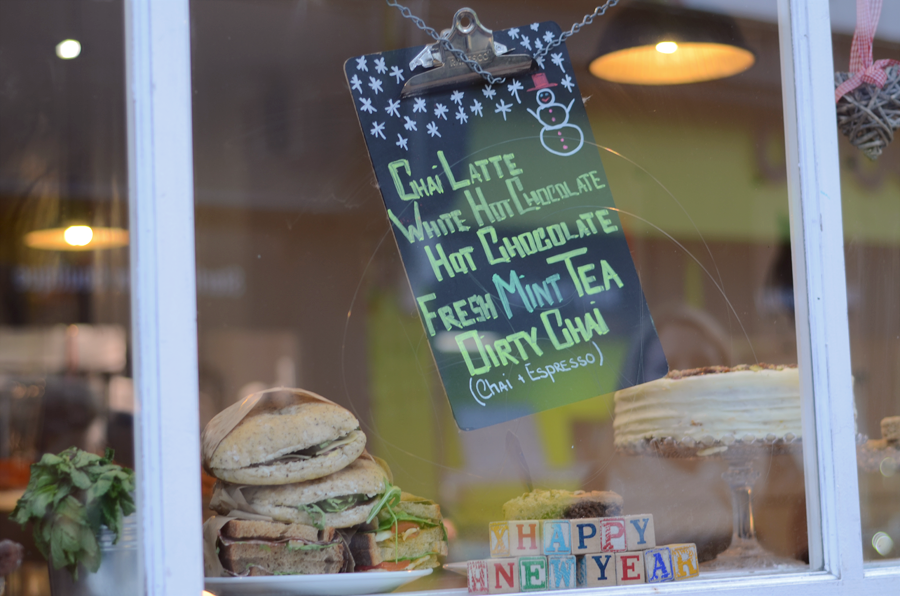 Chai Latte
White Hot Chocolate
Hot Chocolate
Fresh Mint Tea
Dirty Chai
(Chai + Espresso)
Y HAPPY
H NEW YEAR